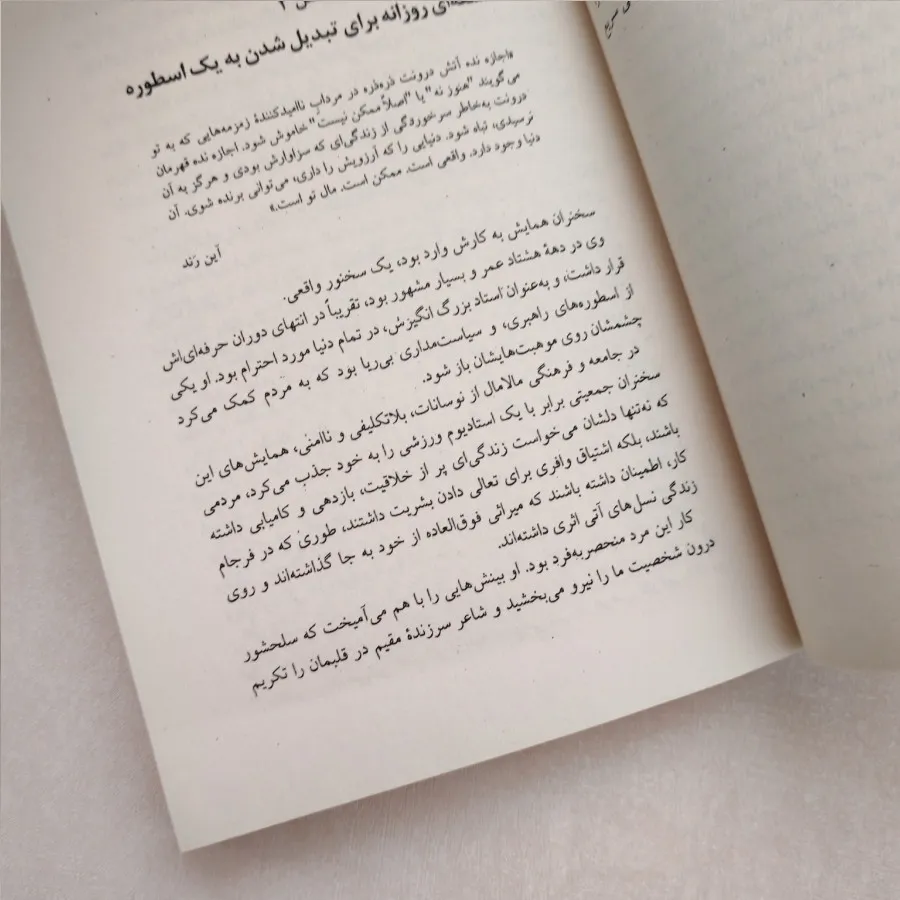 روزانه برای تبدیل شدن به یک اسطوره
«اجازه نده آتش درونت ذره‌ذره در مرداب ناامیدکنندهٔ زمزمه‌هایی که به تو
می‌گویند "هنوز نه" یا "اصلاً ممکن نیست" خاموش شود. اجازه نده قهرمان
درونت به‌خاطر سرخوردگی از زندگی‌ای که سزاوارش بودی و هرگز به آن
نرسیدی، تباه شود. دنیایی را که آرزویش را داری، می‌توانی برنده شوی. آن
دنیا وجود دارد. واقعی است. ممکن است. مال تو است.»
آین رَند
سخنران همایش به کارش وارد بود، یک سخنور واقعی.
وی در دههٔ هشتاد عمر و بسیار مشهور بود، تقریباً در انتهای دوران حرفه‌ای‌اش
قرار داشت، و به‌عنوان استاد بزرگ انگیزش، در تمام دنیا مورد احترام بود. او یکی
از اسطوره‌های راهبری، و سیاست‌مداری بی‌ریا بود که به مردم کمک می‌کرد
چشمشان روی موهبت‌هایشان باز شود.
در جامعه و فرهنگی مالامال از نوسانات، بلاتکلیفی و ناامنی، همایش‌های این
سخنران جمعیتی برابر با یک استادیوم ورزشی را به خود جذب می‌کرد، مردمی
که نه‌تنها دلشان می‌خواست زندگی‌ای پر از خلاقیت، بازدهی و کامیابی داشته
باشند، بلکه اشتیاق وافری برای تعالی دادن بشریت داشتند، طوری که در فرجام
کار، اطمینان داشته باشند که میراثی فوق‌العاده از خود به جا گذاشته‌اند و روی
زندگی نسل‌های آتی اثری داشته‌اند.
کار این مرد منحصربه‌فرد بود. او بینش‌هایی را با هم می‌آمیخت که سلحشور
درون شخصیت ما را نیرو می‌بخشید و شاعر سرزندهٔ مقیم در قلبمان را تکریم